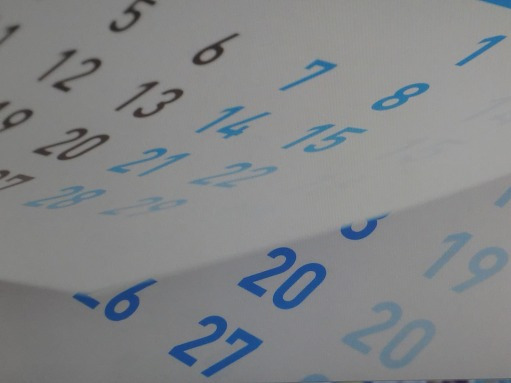 1
5 6 7 8
12 13 14 15
19 20 21 22
27 28 29
19
20 20
6 27